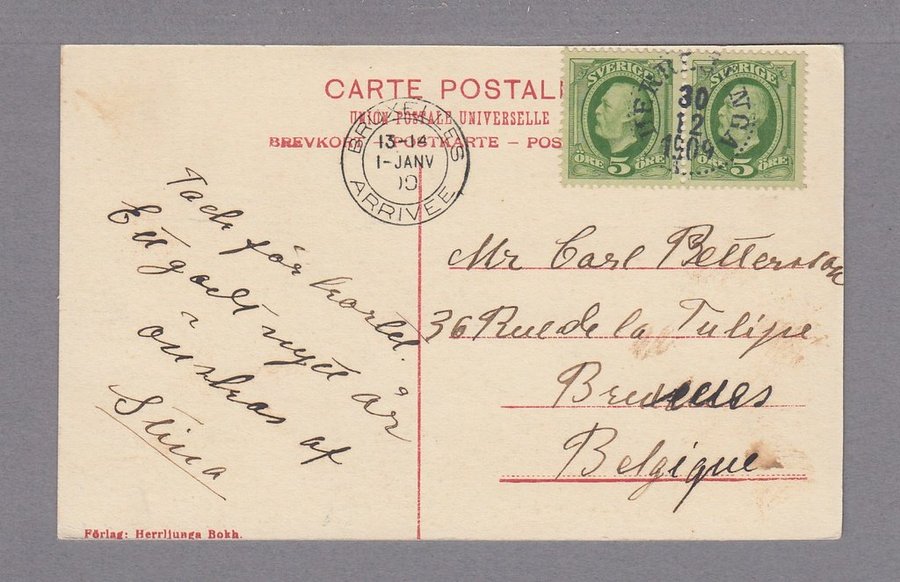 CARTE POSTALE
UNION POSTALE UNIVERSELLE
BREVKORT – POSTKARTE – POS
BRUXELLES
13-14
1-JANV
ARRIVEE
SVERIGE
ÖRE 5 ÖRE
SVERIGE
ÖRE 5 ÖRE
30
12
1909
Tack för kortet.
Ett godt nytt år
önskas af
Stina
Mr Carl Petterson
36 Rue de la Tulipe
Bruxelles
Belgique
Förlag: Herrljunga Bokh.